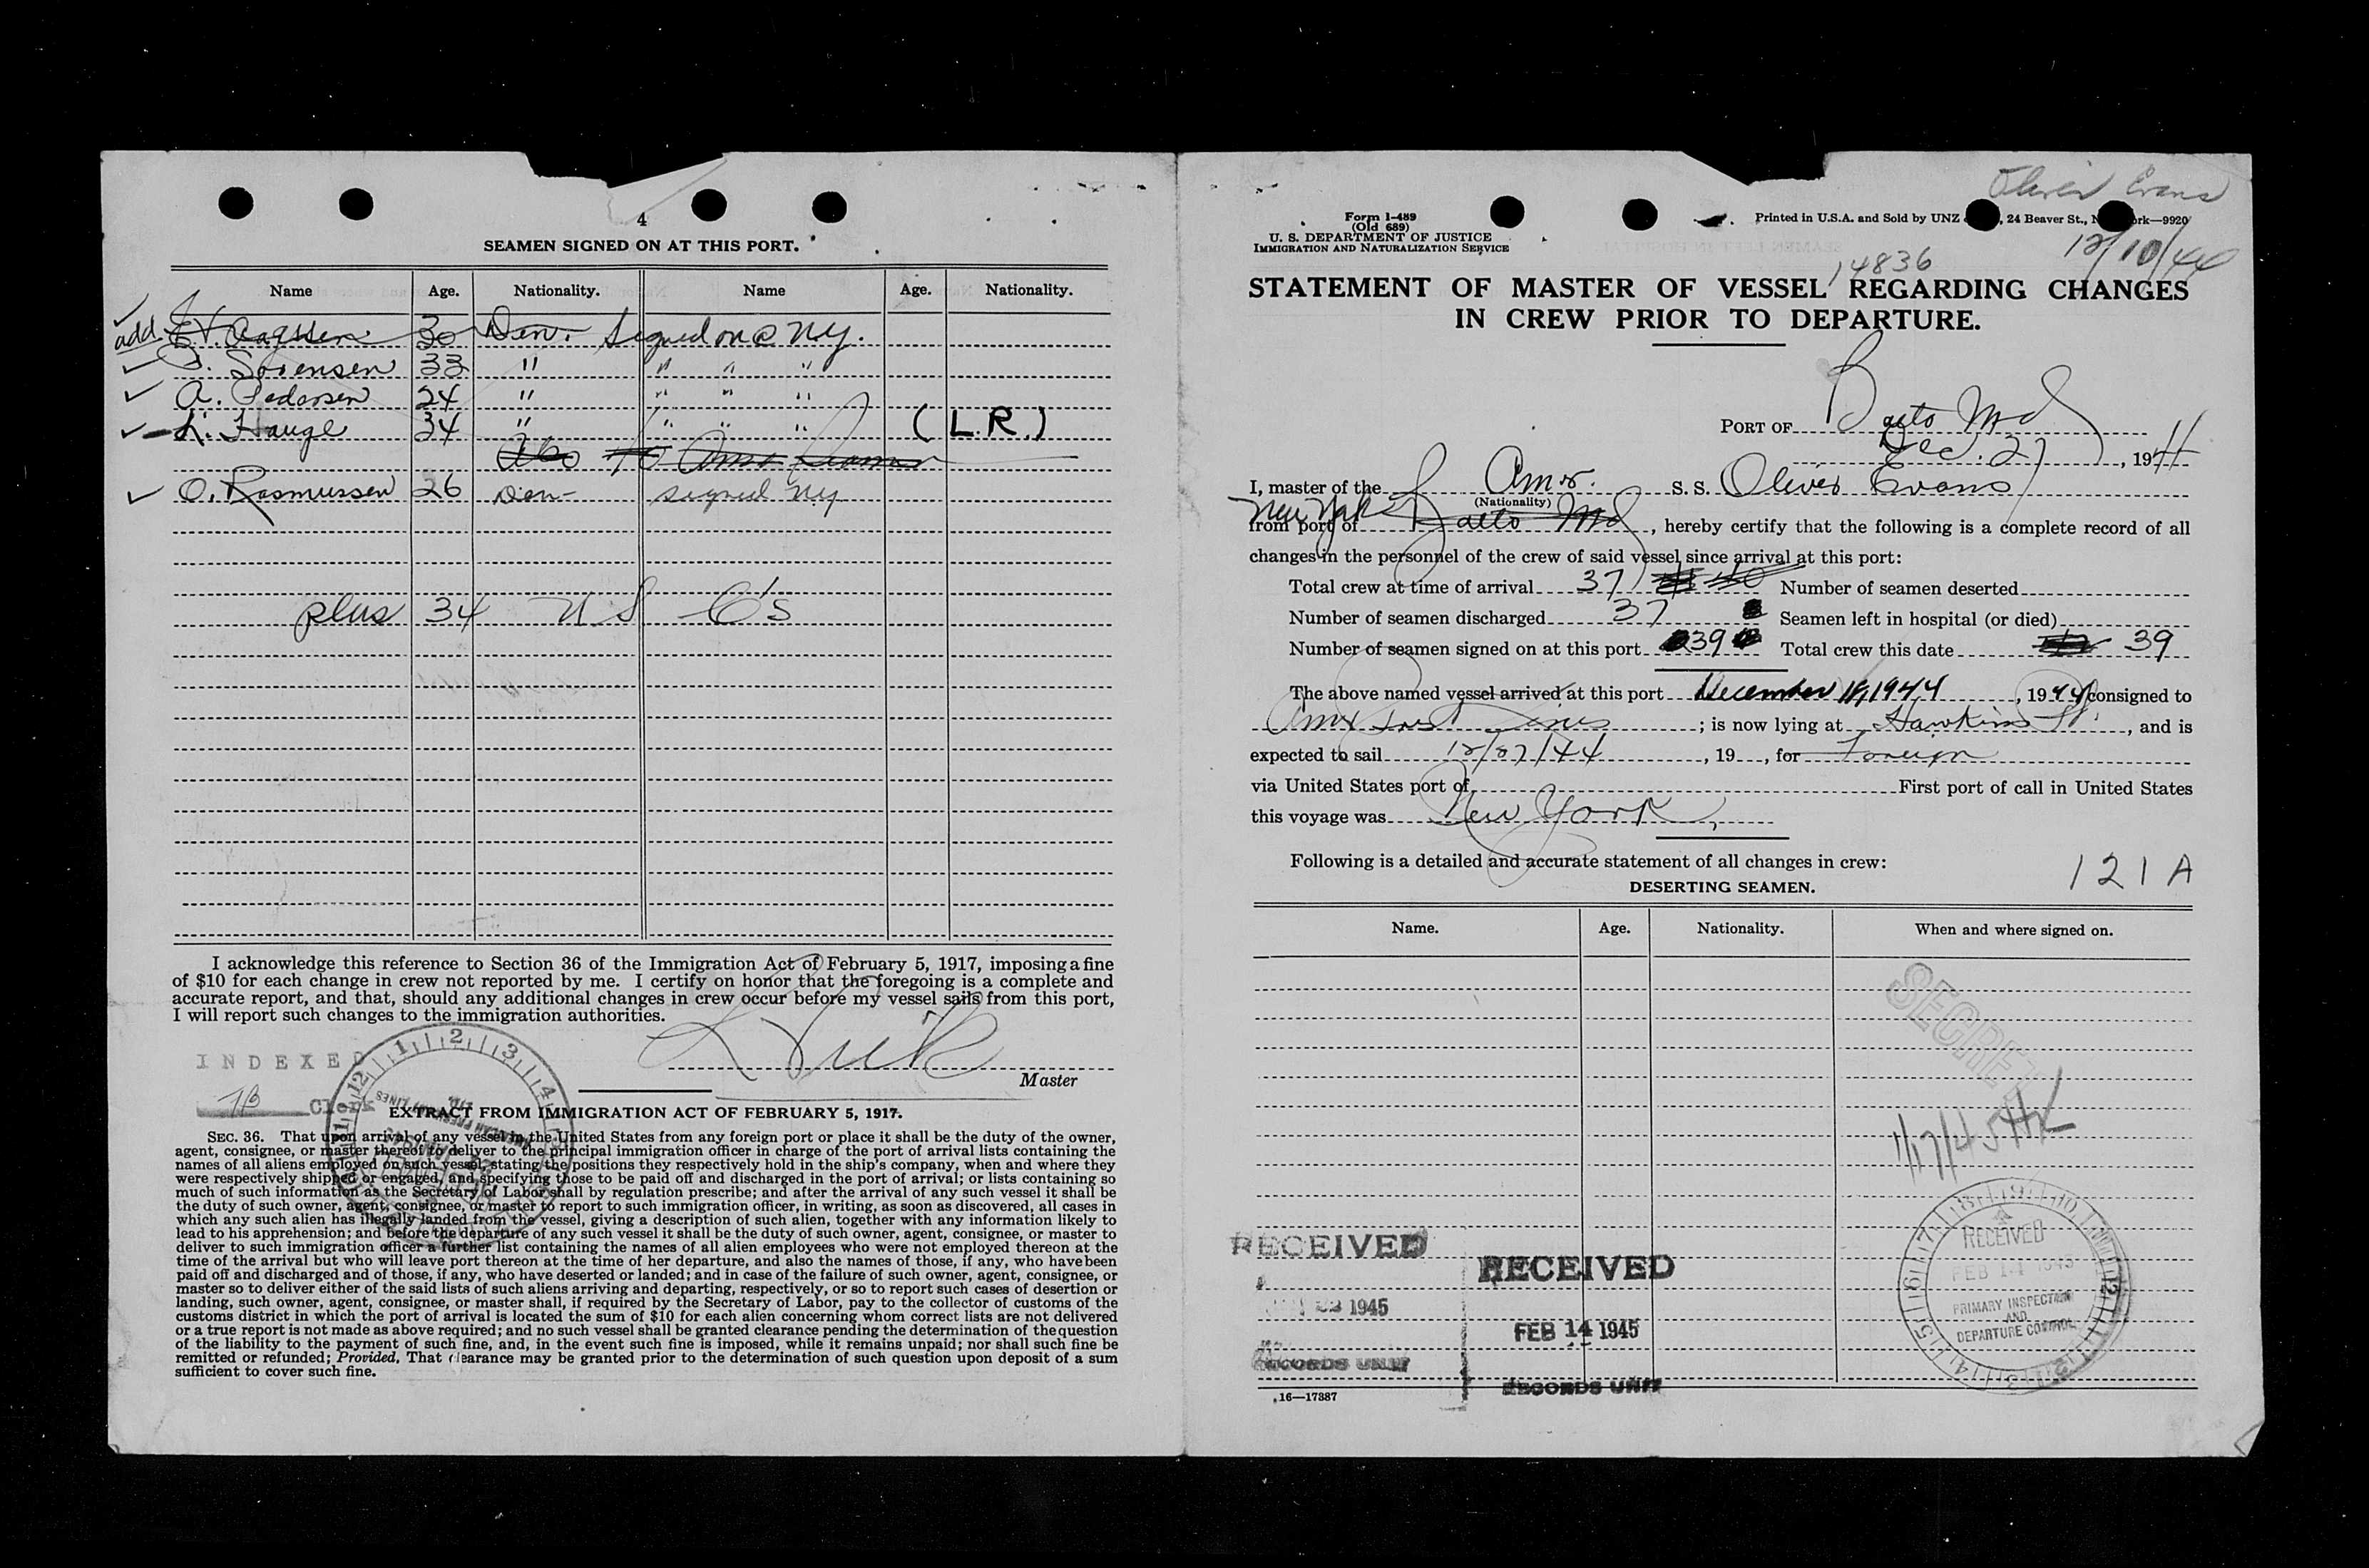 4
SEAMEN SIGNED ON AT THIS PORT.
Name Age. Nationality. Name Age. Nationality.
add 30 Den. Signed on @ NY.
Sorensen 33 " " " "
A. Pedersen 24 " " " "
Hauge 34 " " " " (L.R.)
to
O. Rasmussen 26 Den- signed NY
plus 34 US C's
I acknowledge this reference to Section 36 of the Immigration Act of February 5, 1917, imposing a fine
of $10 for each change in crew not reported by me. I certify on honor that the foregoing is a complete and
accurate report, and that, should any additional changes in crew occur before my vessel sails from this port,
I will report such changes to the immigration authorities.
INDEXED
Clerk
Master
EXTRACT FROM IMMIGRATION ACT OF FEBRUARY 5, 1917.
SEC. 36. That upon arrival of any vessel in the United States from any foreign port or place it shall be the duty of the owner,
agent, consignee, or master thereof to deliver to the principal immigration officer in charge of the port of arrival lists containing the
names of all aliens employed on such vessel, stating the positions they respectively hold in the ship's company, when and where they
were respectively shipped or engaged, and specifying those to be paid off and discharged in the port of arrival; or lists containing so
much of such information as the Secretary of Labor shall by regulation prescribe; and after the arrival of any such vessel it shall be
the duty of such owner, agent, consignee, or master to report to such immigration officer, in writing, as soon as discovered, all cases in
which any such alien has illegally landed from the vessel, giving a description of such alien, together with any information likely to
lead to his apprehension; and before the departure of any such vessel it shall be the duty of such owner, agent, consignee, or master to
deliver to such immigration officer a further list containing the names of all alien employees who were not employed thereon at the
time of the arrival but who will leave port thereon at the time of her departure, and also the names of those, if any, who have been
paid off and discharged and of those, if any, who have deserted or landed; and in case of the failure of such owner, agent, consignee, or
master so to deliver either of the said lists of such aliens arriving and departing, respectively, or so to report such cases of desertion or
landing, such owner, agent, consignee, or master shall, if required by the Secretary of Labor, pay to the collector of customs of the
customs district in which the port of arrival is located the sum of $10 for each alien concerning whom correct lists are not delivered
or a true report is not made as above required; and no such vessel shall be granted clearance pending the determination of the question
of the liability to the payment of such fine, and, in the event such fine is imposed, while it remains unpaid; nor shall such fine be
remitted or refunded; Provided, That clearance may be granted prior to the determination of such question upon deposit of a sum
sufficient to cover such fine.
Oliver Evans
Form I-489
(Old 689)
U. S. DEPARTMENT OF JUSTICE
IMMIGRATION AND NATURALIZATION SERVICE
Printed in U.S.A. and Sold by UNZ 24 Beaver St., ork—9920
12/10/44
14836
STATEMENT OF MASTER OF VESSEL REGARDING CHANGES
IN CREW PRIOR TO DEPARTURE.
PORT OF Balto Md
Dec. 27, 1944
I, master of the Amer. S. S. Oliver Evans
(Nationality)
New York
from port of Balto Md, hereby certify that the following is a complete record of all
changes in the personnel of the crew of said vessel since arrival at this port:
Total crew at time of arrival 37 40 Number of seamen deserted
Number of seamen discharged 37 Seamen left in hospital (or died)
Number of seamen signed on at this port 39 Total crew this date 39
The above named vessel arrived at this port December 1944, 1944 consigned to
Lines; is now lying at Hawkins Pt., and is
expected to sail 12/27/44, 19 , for Foreign
via United States port of First port of call in United States
this voyage was New York,
Following is a detailed and accurate statement of all changes in crew:
121A
DESERTING SEAMEN.
Name. Age. Nationality. When and where signed on.
SECRET
1/17/45
RECEIVED
1945
RECORDS UNIT
RECEIVED
FEB 14 1945
RECORDS UNIT
RECEIVED
FEB 14 1945
PRIMARY INSPECTION
AND
DEPARTURE CONTROL
16—17387